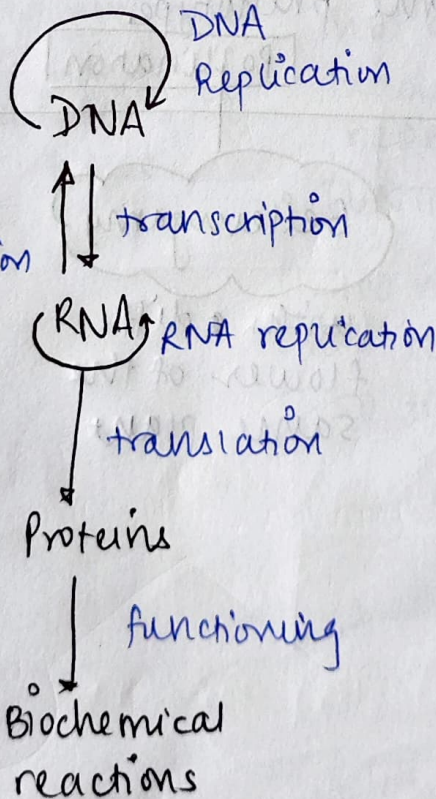 DNA
Replication
DNA
transcription
on
RNA
RNA replication
translation
Proteins
functioning
Biochemical
reactions